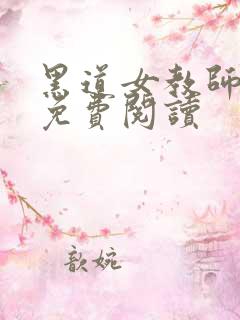 黑道女教師
免費閱讀
歆婉